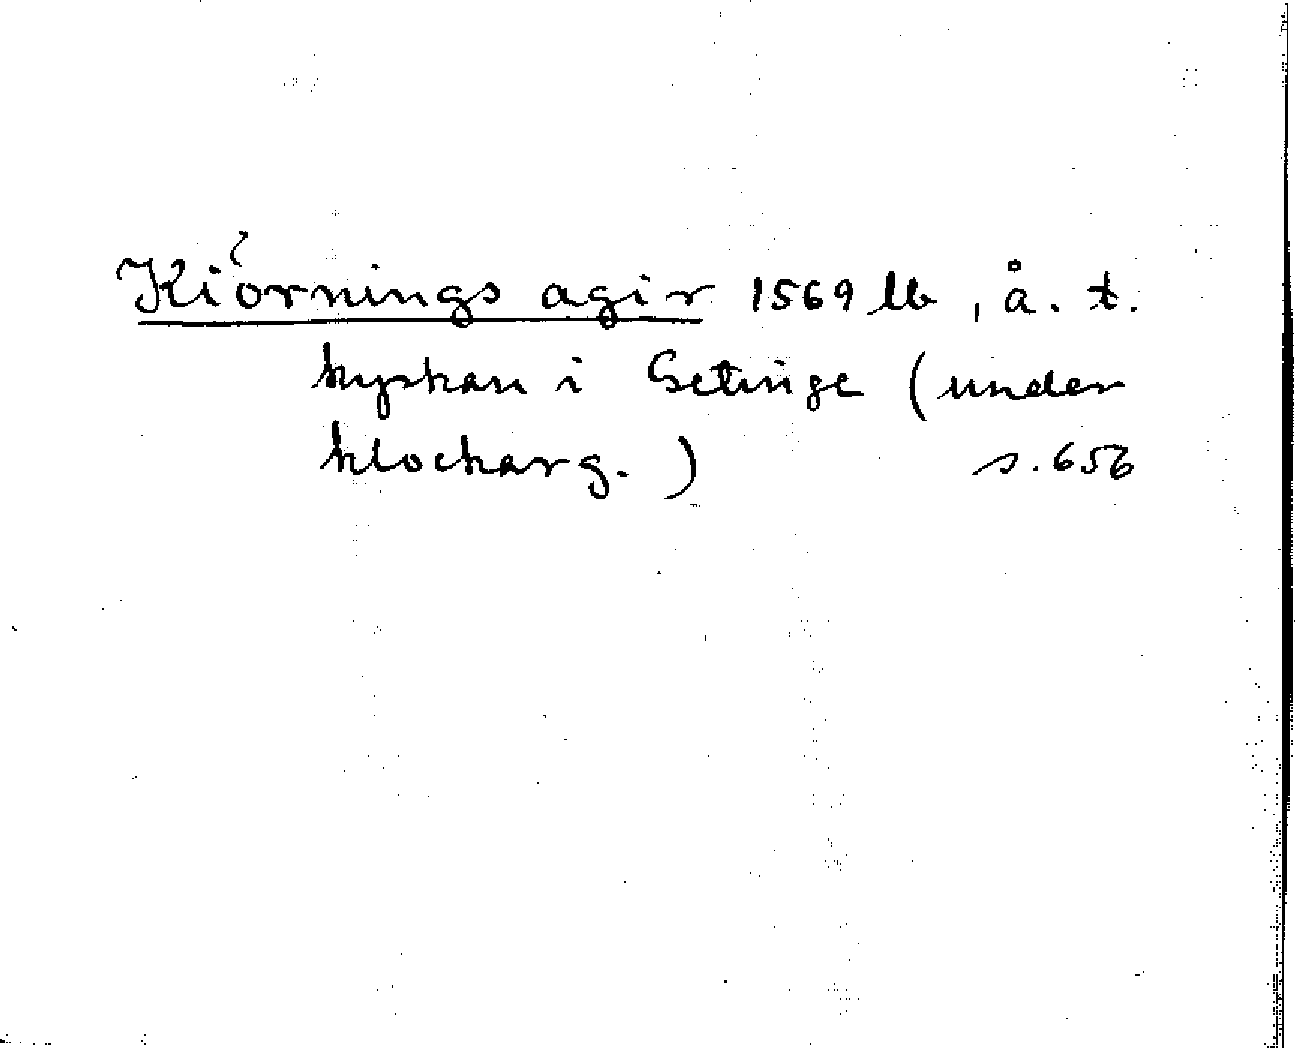 Kiörnings agir 1569 lb, å. t.
kyrkan i Getinge (under
klockarg.) s. 656